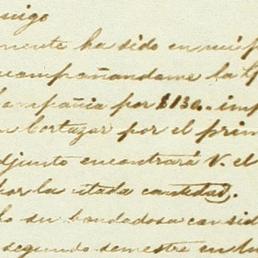 migo
mente ha sido en mi p
acompañandome la
Compañia por $130.. imp
n Cortazar por el prim
djunto encontrará V. el
por la citada cantidad.
do su bondadosa consid
segundo semestre en